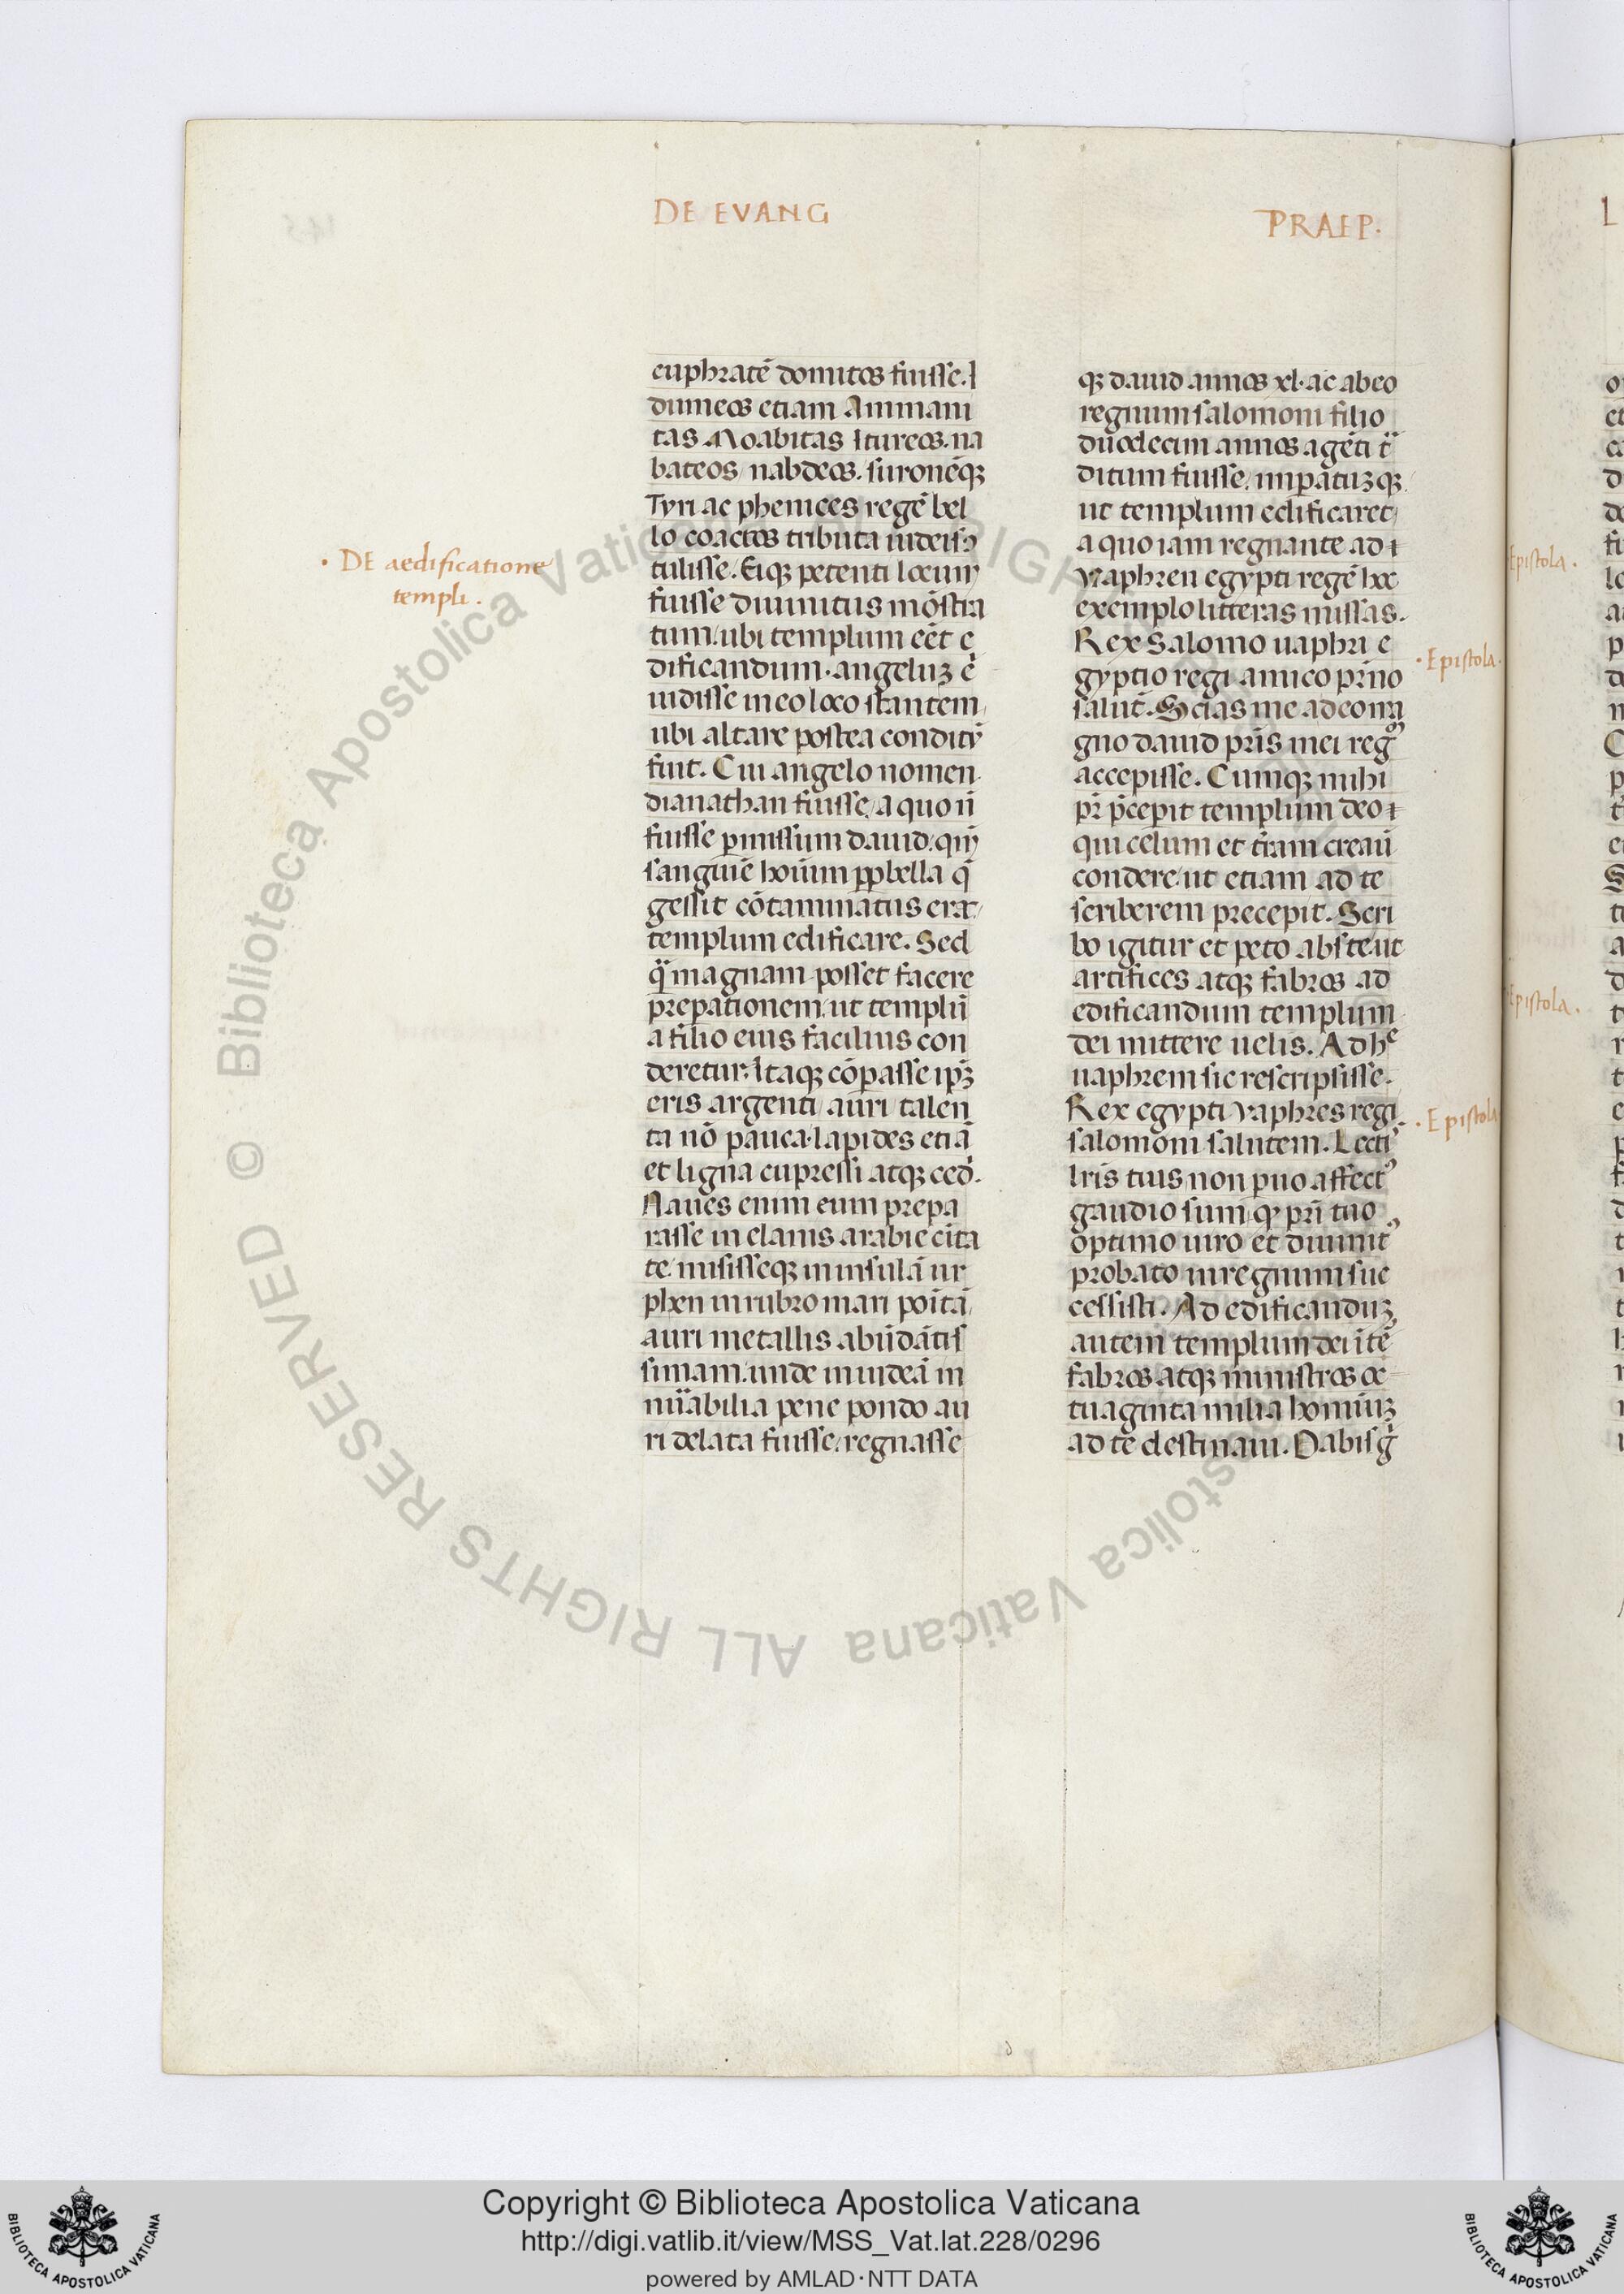 DE EVANG
PRAEP.
euphratẽ domitos fuisse. I
dumeos etiam Ammani
tas Moabitas Itureos. na
bateos nabdeos. suronẽqꝫ
Tyri ac phenices regẽ bel
lo coactos tributa iudeis ↄ
tulisse. Eiqꝫ petenti locum
fuisse diuinitus mõstra
tum. ubi templum eẽt e
dificandum. angeluꝫ ẽ
uidisse in eo loco stantem
ubi altare postea conditũ
fuit. Cui angelo nomen
dianathan fuisse, a quo ñ
fuisse ꝑmissum dauid. qm̃
sanguiẽ hoium ꝓpbella q̃
gessit cõtaminatus erat
templum edificare. Sed
q̃ magnam posset facere
prepationem. ut templũ
a filio eius facilius con
deretur. Itaqꝫ cõpasse ipꝫ
eris argenti auri talen
ta nõ pauca. lapides etiã
et ligna cupressi atqꝫ ced̃.
Naues enim eum prepa
rasse in elanis arabie cita
te. misisseqꝫ in insulã ur
phen in rubro mari poĩtã
auri metallis abũdãtis
simam. unde in iudeã in
nũabilia pene pondo au
ri delata fuisse. regnasse
· DE aedificatione
templi.
qꝫ dauid annos xl. ac ab eo
regnum salomoni filio
duodecim annos agẽti t̃
ditum fuisse. imꝑatuꝫqꝫ
ut templum edificaret
a quo iam regnante ad
Vaphren egypti regẽ hoc
exemplo litteras missas.
Rex Salomo uaphri e
gyptio regi amico pr̃no
salut̃. Scias me a deo ma
gno dauid pr̃is mei regꝰ
accepisse. Cumqꝫ mihi
pr̃ p̃cepit templum deo
qui celum et tr̃am creau
condere. ut etiam ad te
scriberem precepit. Scri
bo igitur et peto abs te. ut
artifices atqꝫ fabros ad
edificandum templum
dei mittere uelis. Ad hͤ
uaphrem sic rescripsisse.
Rex egypti Vaphres regi
salomoni salutem. Lectꝭ
lr̃is tuis non ꝑuo affectꝰ
gaudio sum. qꝫ pr̃i tuo
optimo uiro et diuinitꝰ
probato in regnum suc
cessisti. Ad edificanduꝫ
autem templum dei itẽ
fabros atqꝫ ministros oc
tuaginta milia hominꝫ
ad te destinaui. Dabis g̃
· Epistola.
· Epistola
Epistola.
Epistola.
Copyright © Biblioteca Apostolica Vaticana
http://digi.vatlib.it/view/MSS_Vat.lat.228/0296
powered by AMLAD·NTT DATA
BIBLIOTECA APOSTOLICA VATICANA
BIBLIOTECA APOSTOLICA VATICANA
© Biblioteca Apostolica Vaticana ALL RIGHTS RESERVED